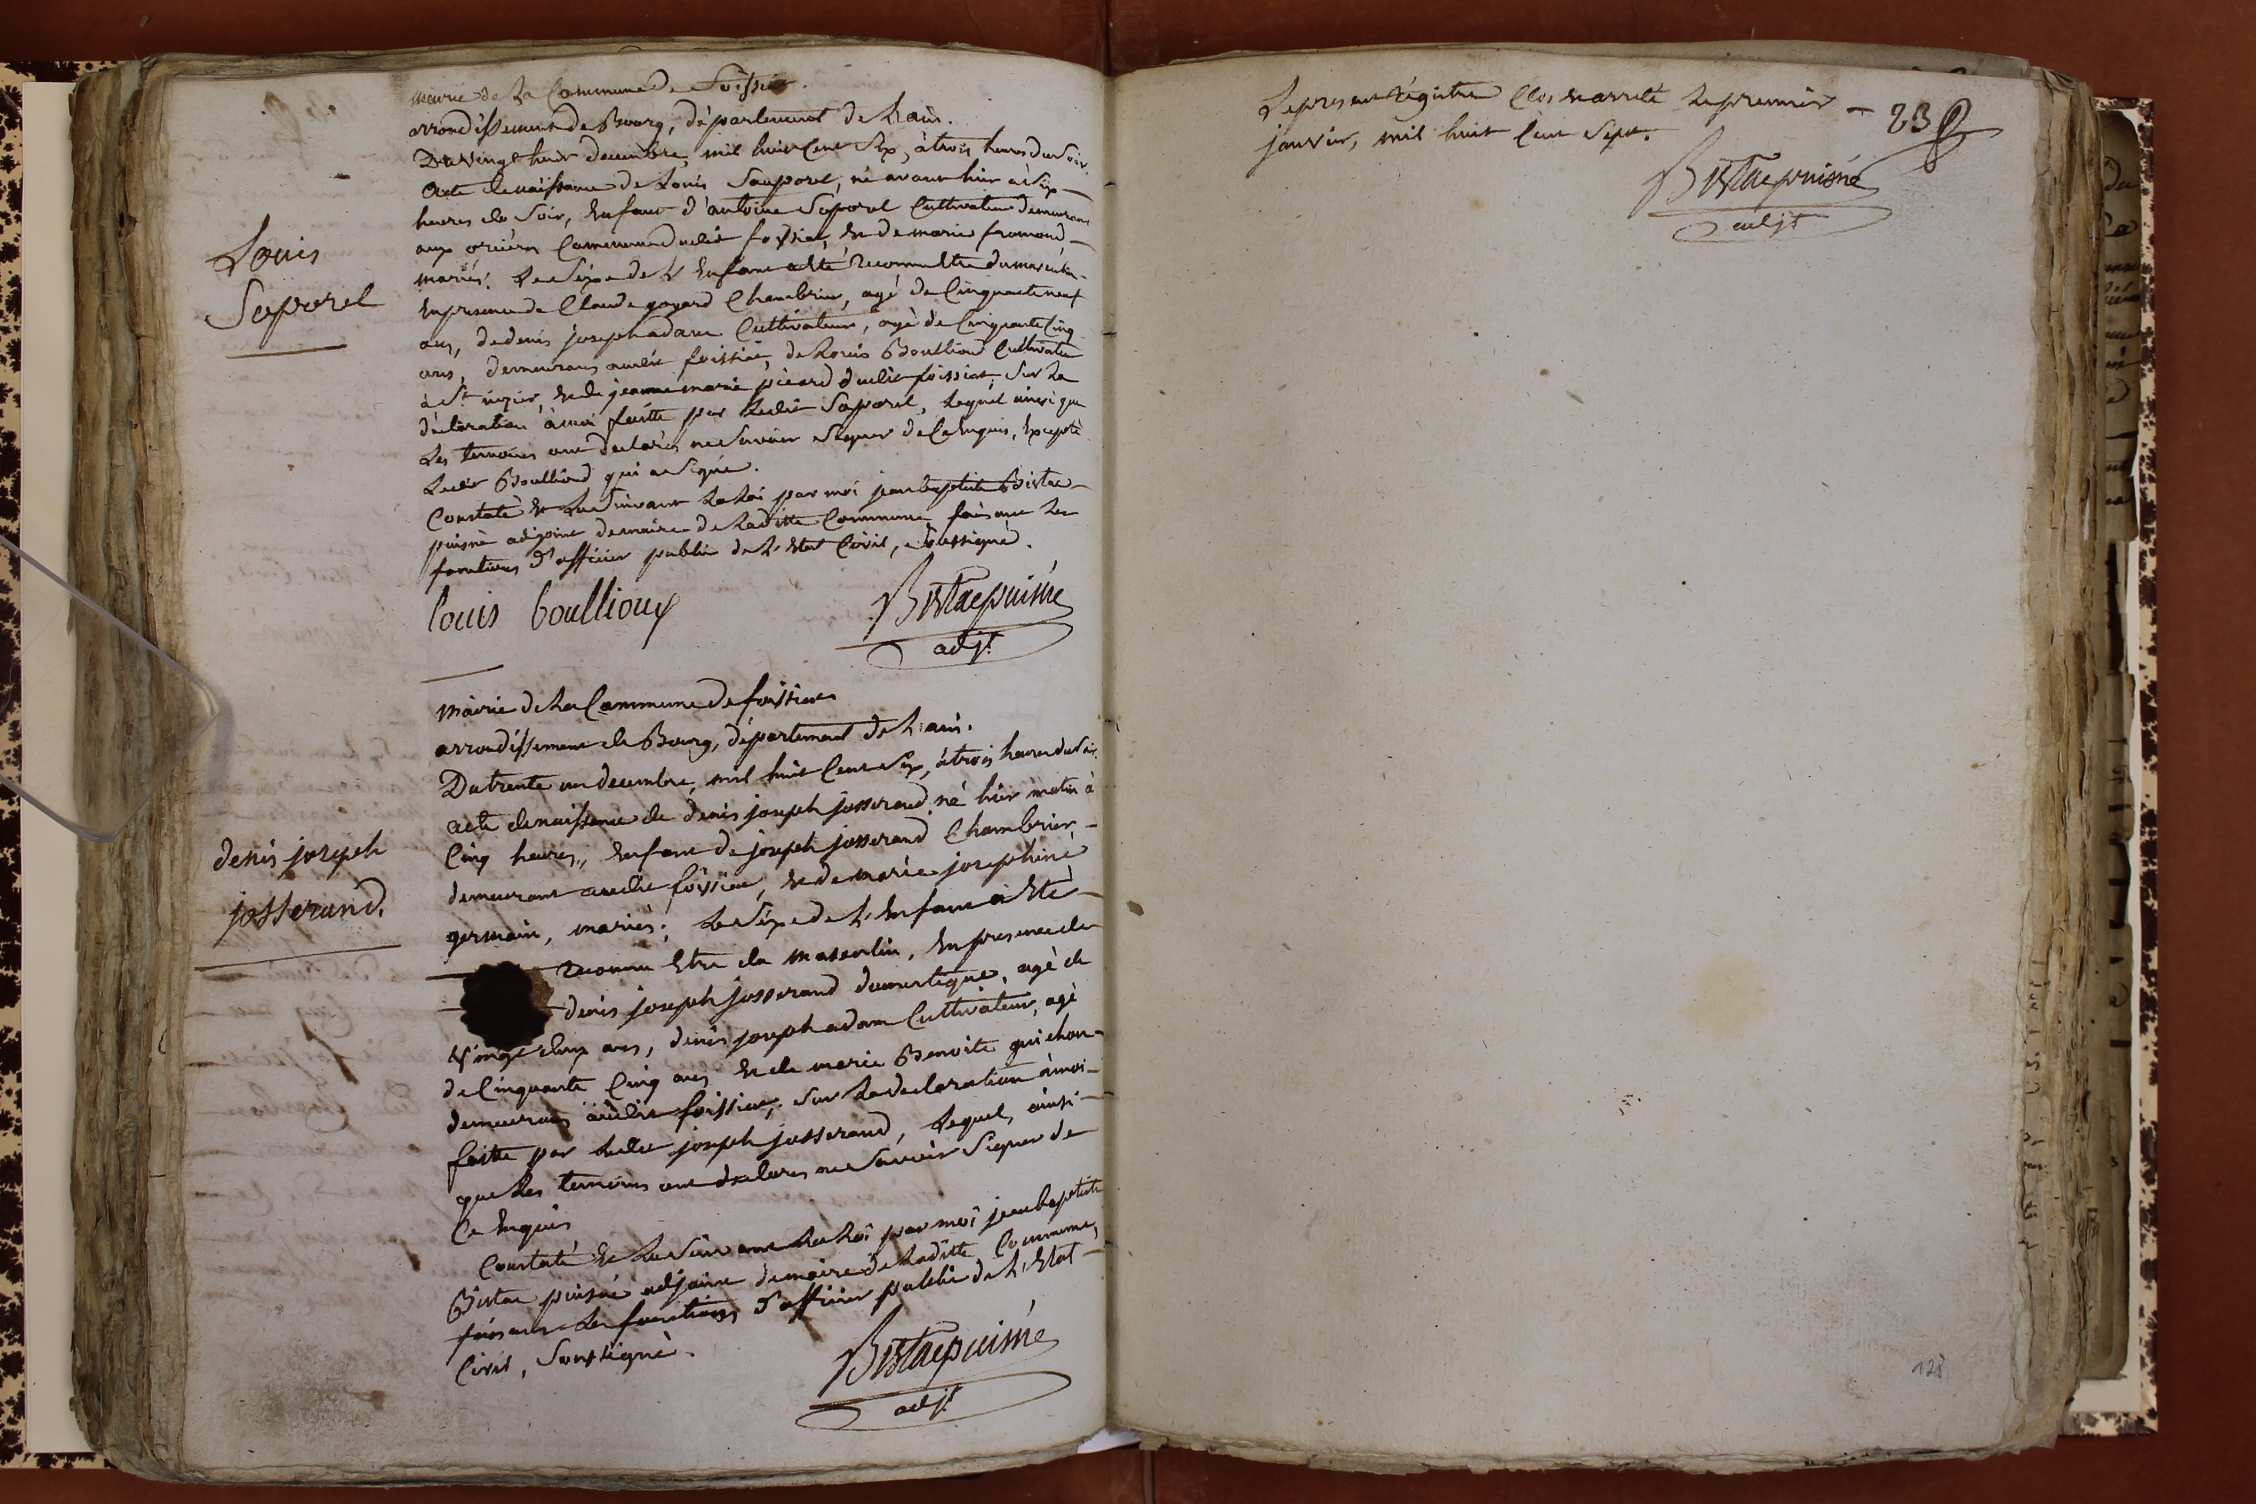 mairie de la Commune de foissiat.
arrondissement de Bourg, département de L'ain.
Du vingt huit decembre, mil huit Cent Six, à trois heures du soir.
Acte de naissance de Louis Saporel, né avant hier à Six
heures du Soir, Enfant d'antoine Saporel Cultivateur demeurant
aux Commune dudit foissiat, Et de marie fromond
mariés. Le Sexe de L'Enfant a Eté reconnu Etre du masculin
En presence de Claude goyard Chambrier, agé de Cinquante neuf
ans, de denis joseph adam Cultivateur, agé de Cinquante Cinq
ans, demeurans audit foissiat, de Louis Boulliond Cultivateur
à St. , Et de jeanne marie picard dudit foissiat, Sur La
déclaration à moi faitte par Ledit Saporel, Lequel ainsi que
Les temoins ont declarés ne Savoir Signer de Ce Enquis, Excepté
Ledit Boulliond qui a Signé.
Constaté Et Lu Suivant La Loi par moi jean baptiste Bistac
puisné adjoint de maire de Laditte Commune faisant Les
fonctions d'officier public de L'Etat Civil, Soussigné.
Louis Saporel
louis boullioux
Bistac puisné
adjt.
mairie de La Commune de foissiat
arrondissement de Bourg, département de L'ain.
Du trente un decembre, mil huit Cent Six, à trois heures du Soir.
acte de naissance de denis joseph josserand né hier matin à
Cinq heures, Enfant de joseph josserand Chambrier,
demeurant audit foissiat, Et de marie josephine
germain, mariés; Le Sexe de L'Enfant a Eté
reconnu Etre du masculin, En presence de
denis joseph josserand domestique, agé de
Vingt deux ans, denis joseph adam Cultivateur, agé
de Cinquante Cinq ans Et de marie Benoite guichon
demeurans audit foissiat; Sur La declaration à moi
faitte par Ledit joseph josserand, Lequel, ainsi
que Les temoins ont declarés ne Savoir Signer de
Ce Enquis
Constaté Et Lu Suivant La Loi par moi jean baptiste
Bistac puisné adjoint de maire de Laditte Commune,
faisant Les fonctions d'officier public de L'Etat
Civil, Soussigné.
denis joseph
josserand.
Bistac puisné
adjt
Le present régistre Clos Et arreté Le premier
janvier, mil huit Cent Sept.
23
Bistac puisné
adjt
128